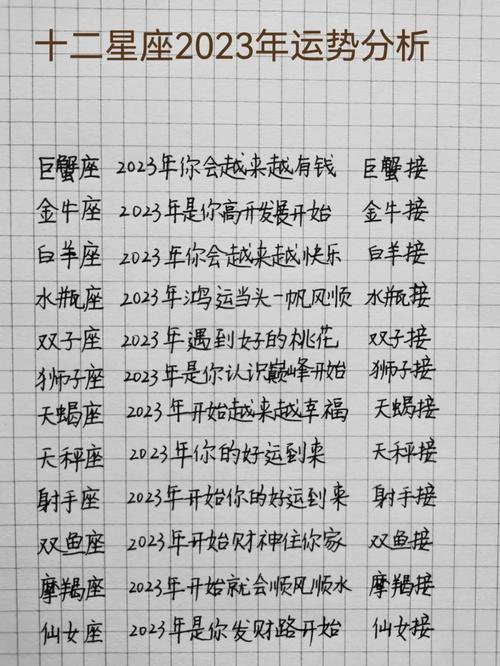 十二星座2023年运势分析
巨蟹座 2023年你会越来越有钱 巨蟹接
金牛座 2023年是你高开发展开始 金牛接
白羊座 2023年你会越来越快乐 白羊接
水瓶座 2023年鸿运当头一帆风顺 水瓶接
双子座 2023年遇到好的桃花 双子接
狮子座 2023年是你认识巅峰开始 狮子接
天蝎座 2023年开始越来越幸福 天蝎接
天秤座 2023年你的好运到来 天秤接
射手座 2023年开始你的好运到来 射手接
双鱼座 2023年开始财神住你家 双鱼接
摩羯座 2023年开始就会顺风顺水 摩羯接
仙女座 2023年是你发财路开始 仙女接